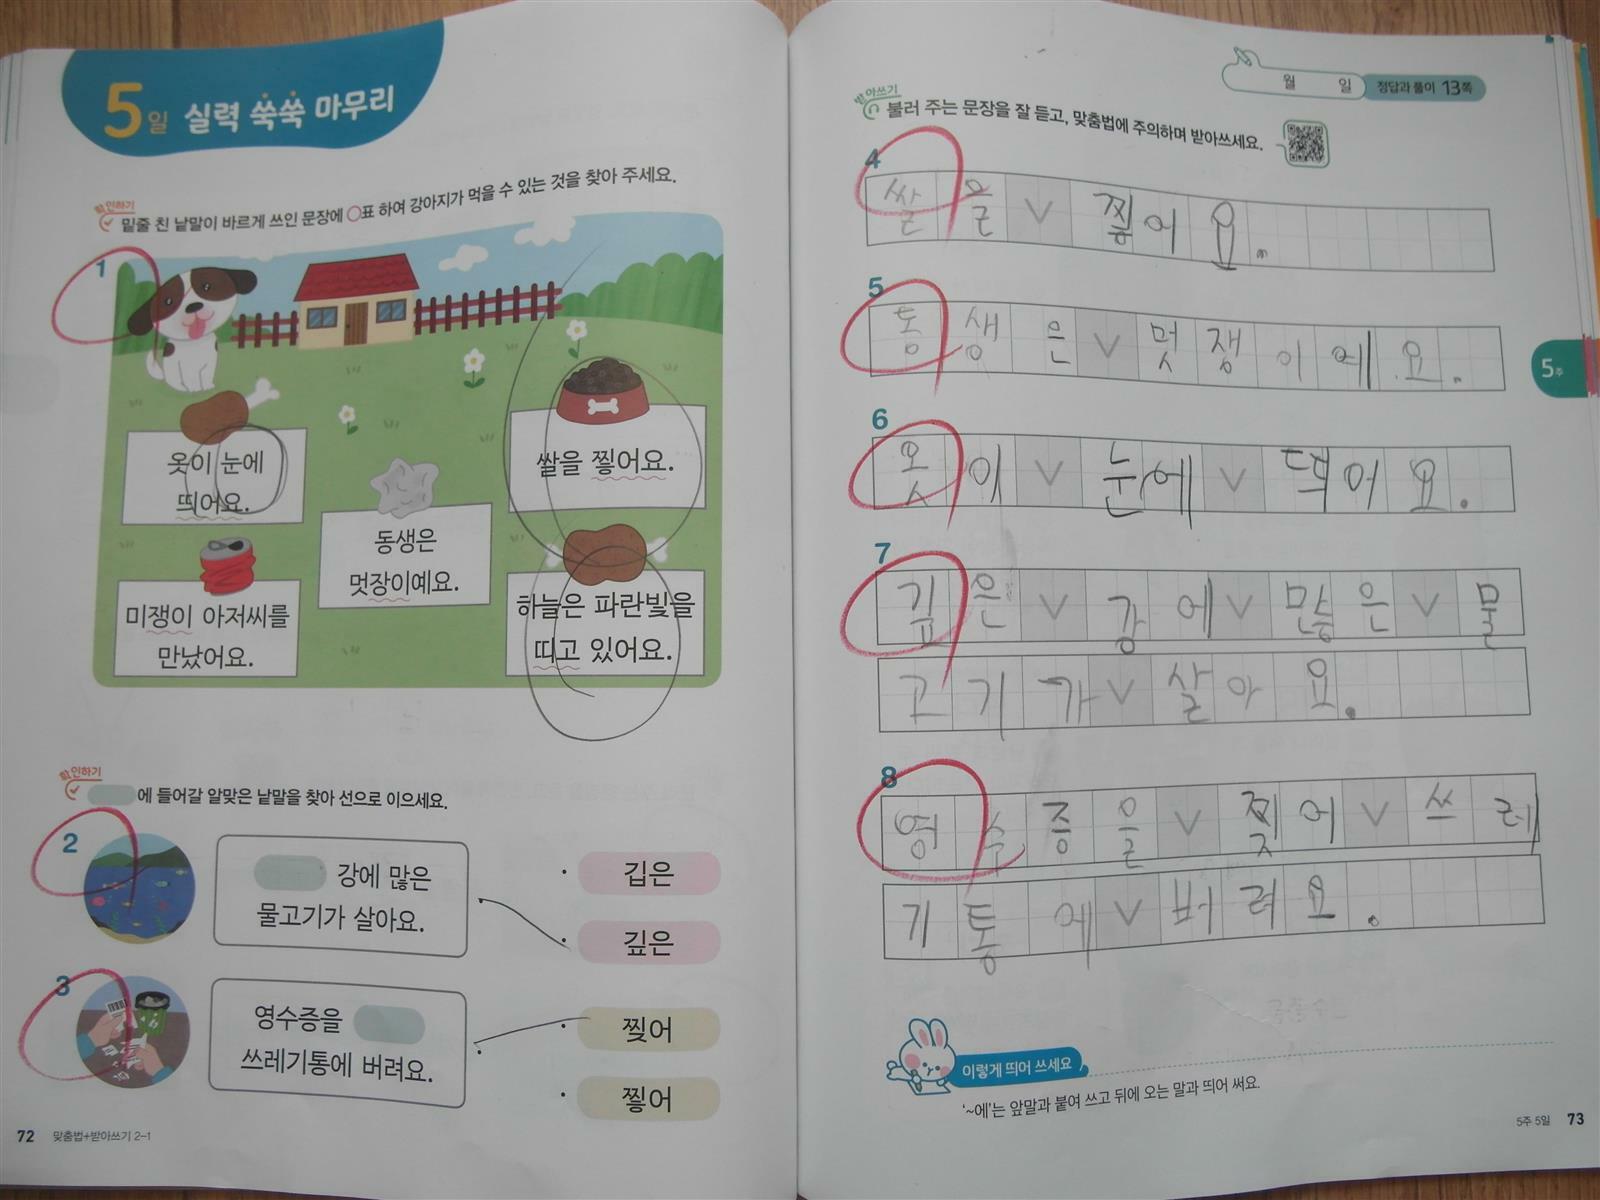 5일 실력 쑥쑥 마무리
확인하기
밑줄 친 낱말이 바르게 쓰인 문장에 ○표 하여 강아지가 먹을 수 있는 것을 찾아 주세요.
1
옷이 눈에
띄어요.
쌀을 찧어요.
동생은
멋장이예요.
미쟁이 아저씨를
만났어요.
하늘은 파란빛을
띠고 있어요.
확인하기
에 들어갈 알맞은 낱말을 찾아 선으로 이으세요.
2
강에 많은
물고기가 살아요.
깁은
깊은
3
영수증을
쓰레기통에 버려요.
찢어
찧어
72 맞춤법+받아쓰기 2-1
월 일
정답과 풀이 13쪽
받아쓰기
불러 주는 문장을 잘 듣고, 맞춤법에 주의하며 받아쓰세요.
4
쌀을∨찧어요.
5
동생은∨멋쟁이에요.
5주
6
옷이∨눈에∨띄어요.
7
깊은∨강에∨많은∨물
고기가∨살아요.
8
영수증을∨찢어∨쓰레
기통에∨버려요.
이렇게 띄어 쓰세요
'~에'는 앞말과 붙여 쓰고 뒤에 오는 말과 띄어 써요.
5주 5일 73